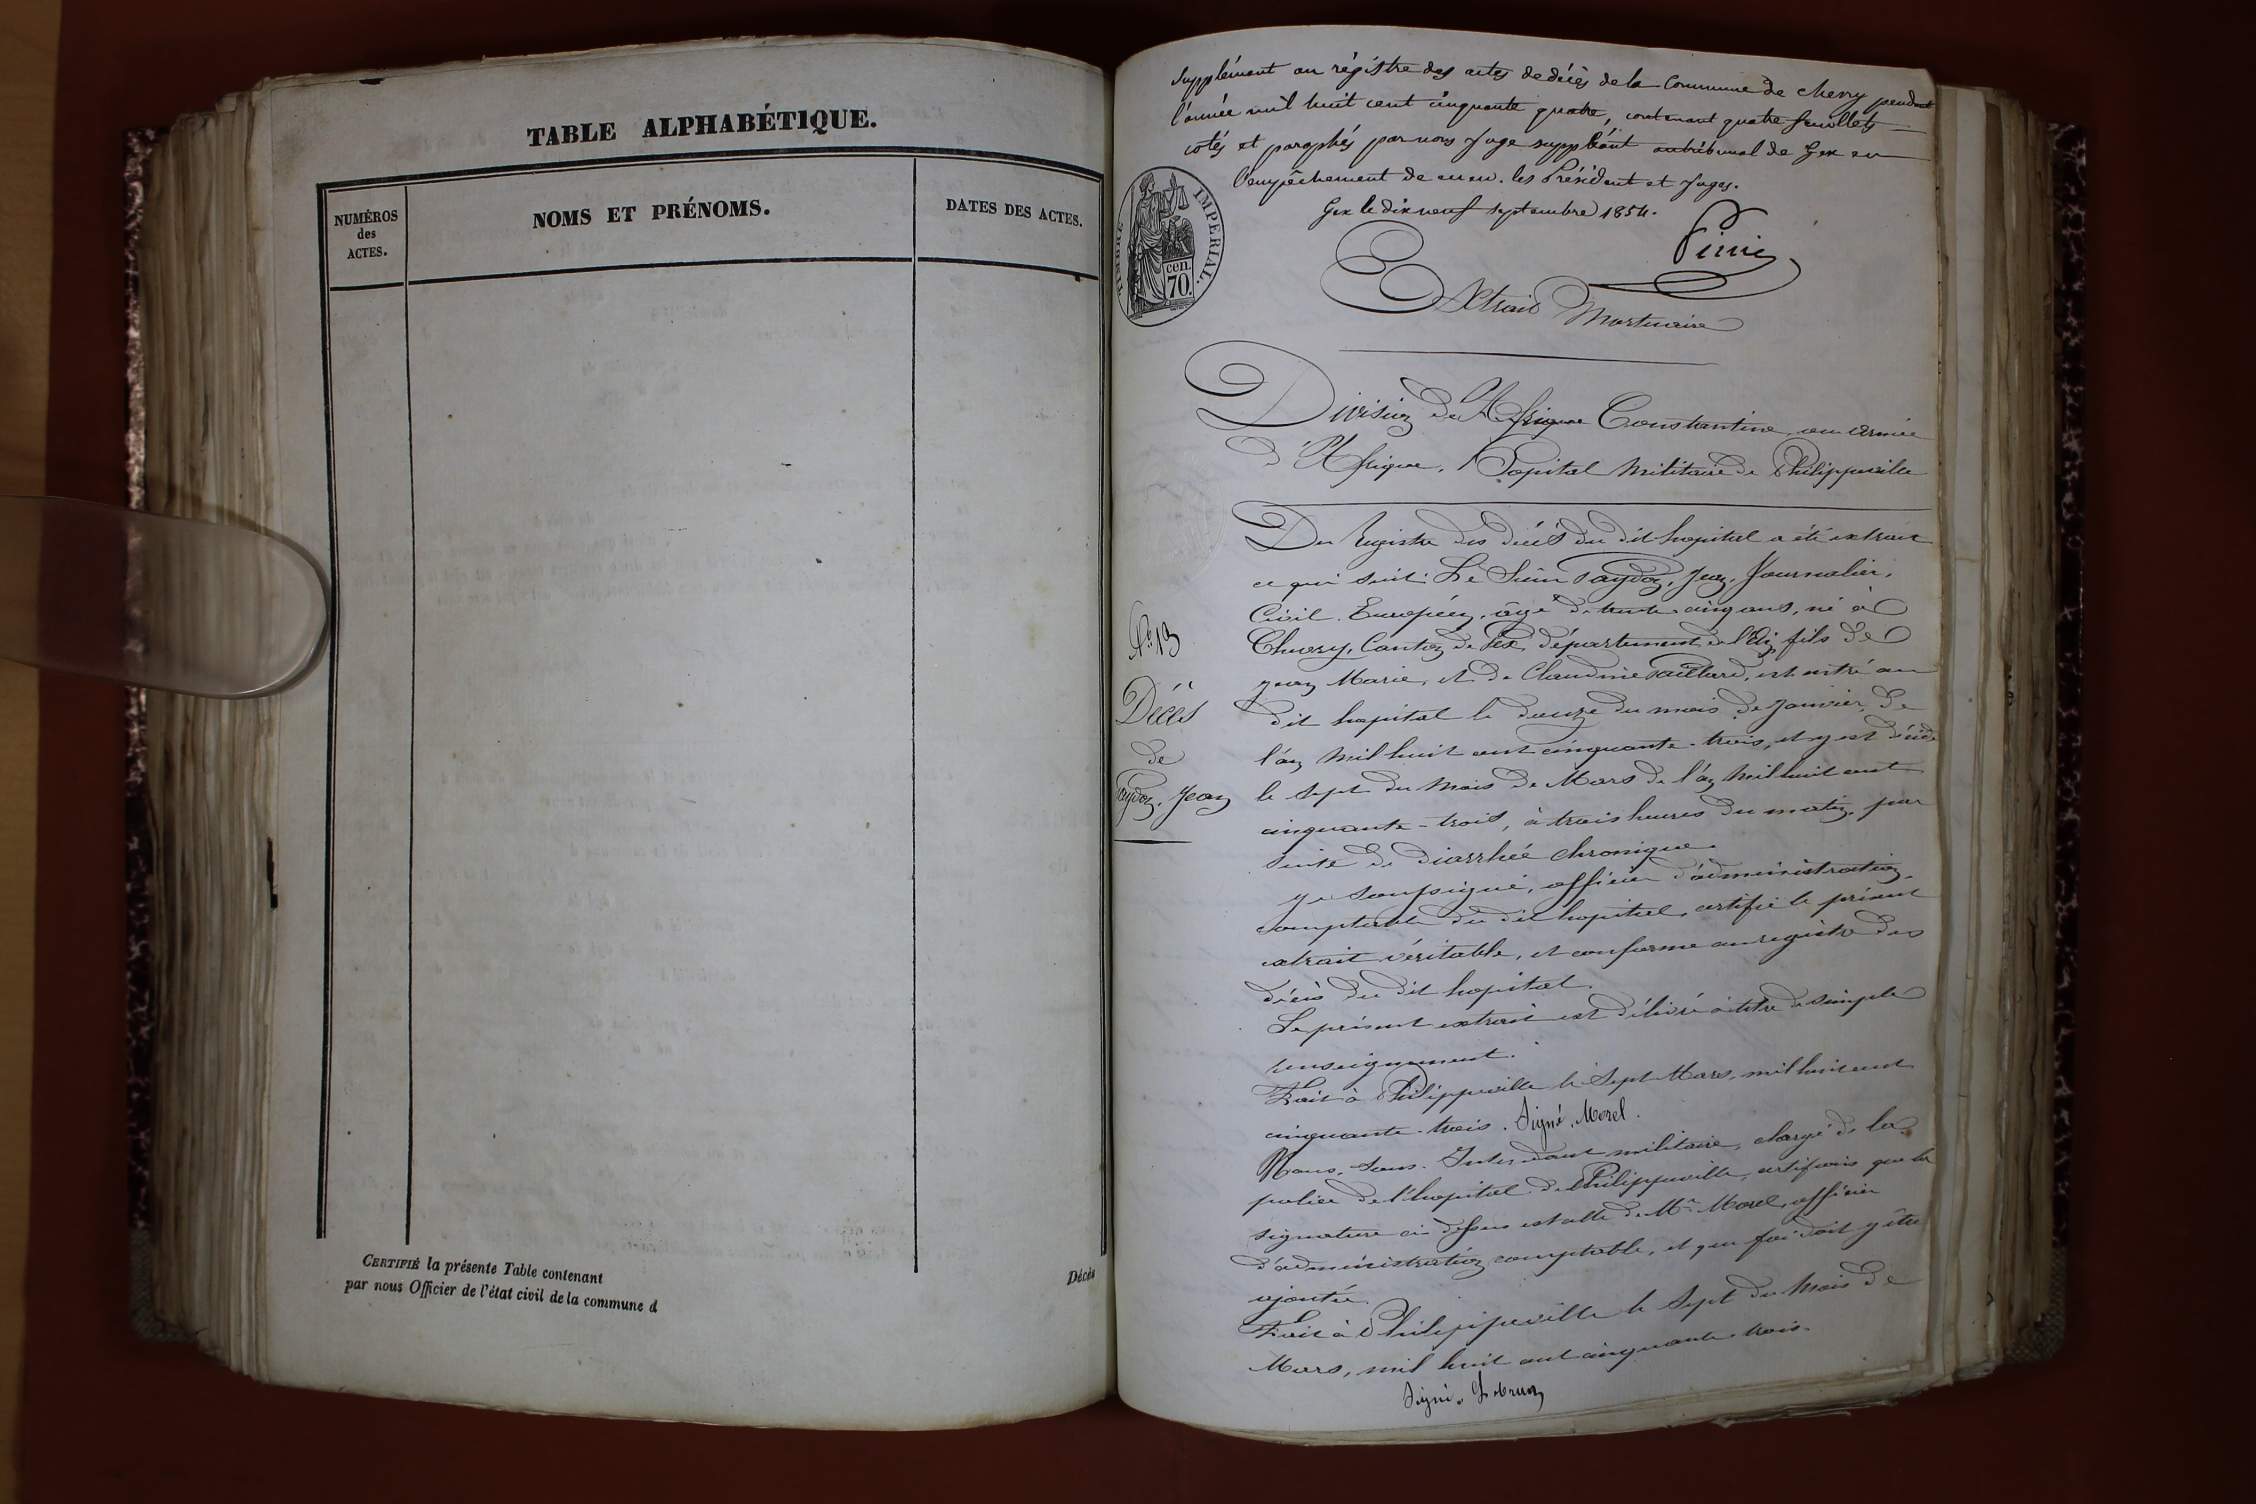 TABLE ALPHABÉTIQUE.
NUMÉROS
des
ACTES.
NOMS ET PRÉNOMS.
DATES DES ACTES.
CERTIFIÉ la présente Table contenant
par nous Officier de l'état civil de la commune d
Décès
Supplément au régistre des actes de décès de la Commune de chevry pendant
l'année mil huit cent cinquante quatre, contenant quatre feuillets
cotés et paraphés par nous Juge suppléant au tribunal de Gex en
l'empêchement de mm. les Président et Juges.
Gex le dix neuf septembre 1854.
TIMBRE IMPERIAL.
cen.
70.
Extrait Mortuaire
Division de Constantine, armée
d'Afrique, Hopital Militaire de Philippeville
Du Registre des décès du dit hopital a été extrait
ce qui suit: Le Sieur Jean, Journalier,
Civil Européen, âgé de trente cinq ans, né à
Chevry, Canton de Gex, département de l'Ain, fils de
Jean Marie, et de Claudine Paillard, est entré au
dit hopital le douze du mois de Janvier, de
l'an mil huit cent cinquante-trois, et y est décédé
le sept du mois de Mars de l'an mil huit cent
cinquante-trois, à trois heures du matin, par
suite de diarrhée chronique.
Je soussigné, officier d'administration,
comptable du dit hopital, certifie le présent
extrait véritable, et conforme au registre des
décès du dit hopital.
Le présent extrait est délivré à titre de simple
renseignement.
Fait à Philippeville le Sept Mars, mil huit cent
cinquante-trois. Signé, Morel.
Nous, Sous-Intendant militaire, chargé de la
police de l'hopital de Philippeville, certifions que la
signature ci dessus est celle de Mr. Morel, officier
d'administration comptable, et que foi doit y être
ajoutée.
Fait à Philippeville le Sept du Mois de
Mars, mil huit cent cinquante-trois.
Signé,
No 13
Décès
de
Jean